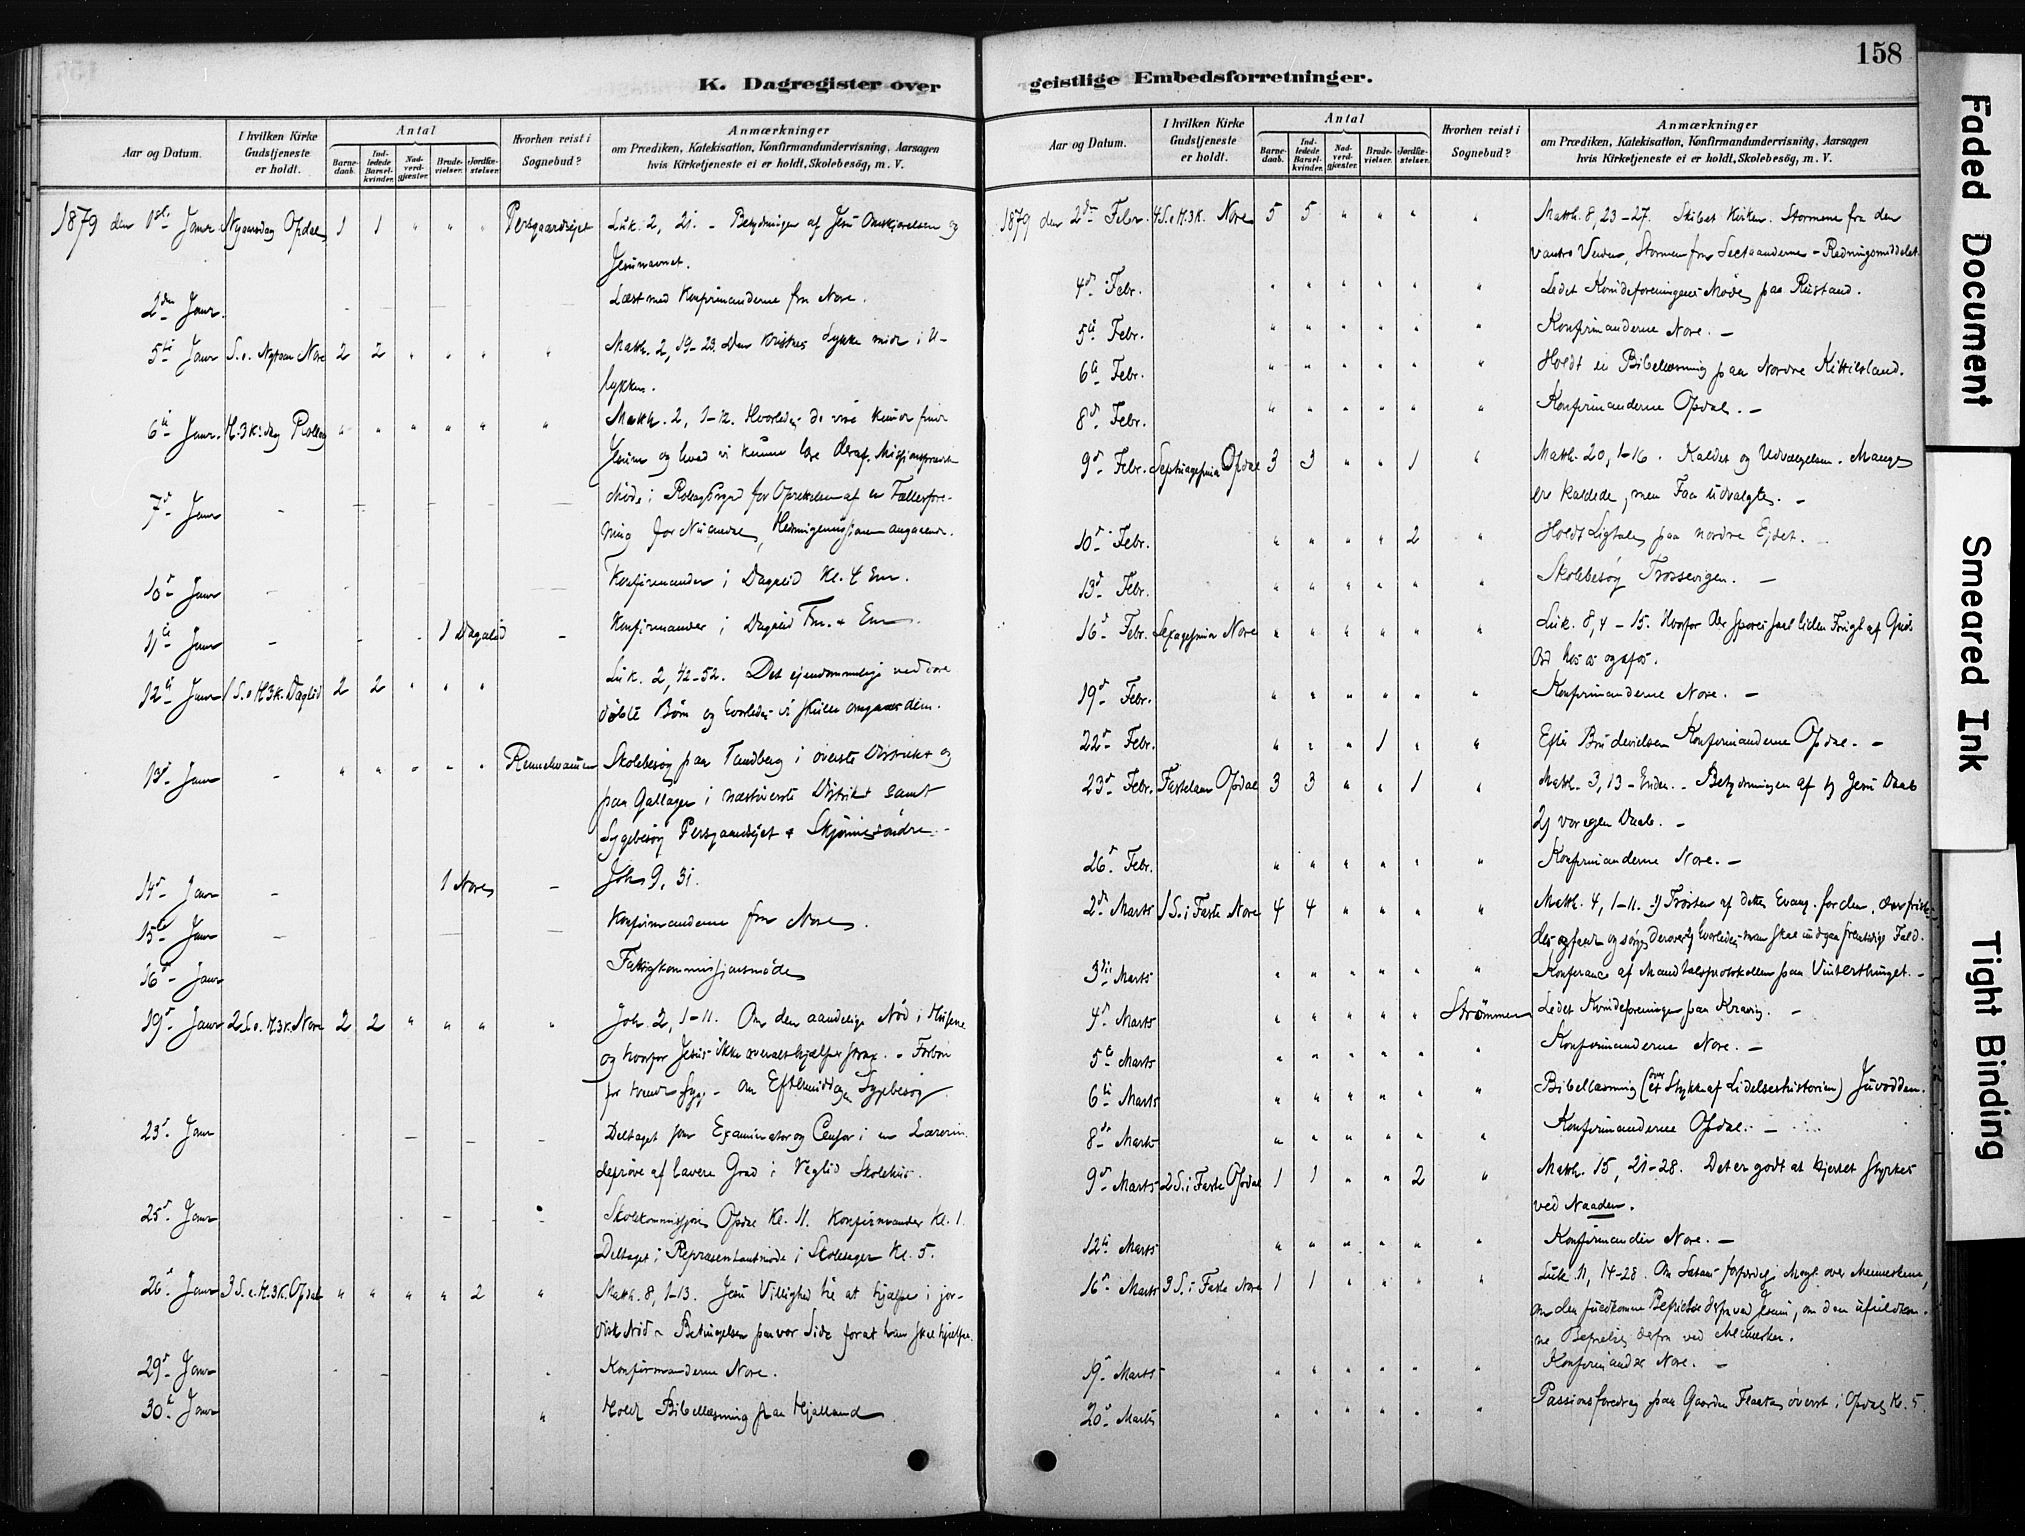 158
K. Dagregister over
geistlige Embedsforretninger.
Aar og Datum.
I hvilken Kirke Gudstjeneste er holdt.
Antal
Barnedaab.
Indledede Barselkvinder.
Nadverdgjæster.
Brudevielser.
Jordfæstelser.
Hvorhen reist i Sognebud?
Anmærkninger
om Prædiken, Katekisation, Konfirmandundervisning, Aarsagen
hvis Kirketjeneste ei er holdt, Skolebesög, m. V.
1879 den 1ste Janr. Nyaarsdag Opdal 1 1 " " " Persgaardsejet Luk. 2, 21. - Betydningen af Jesu Omskjærelse og
Jesunavnet.
2den Janr. Læst med Konfirmanderne fra Nore.
5te Janr S. e. Nytaar Nore 2 2 " " " " Matth. 2, 19-23. Den Kristnes Lykke midt i U-
lykken.
6te Janr. H. 3 K. dag Rollag " " " " " " Matth. 2, 1-12. Hvorledes de vise
Jesum og hvad vi kunne lære deraf.
7de Janr Møde i for Oprettelsen af en Fællesfore-
ning for Numedal, angaaende.
10de Janr Konfirmander i Daglid Kl. 4 Em.
11te Janr 1 Daglid Konfirmander i Daglid Fm. + Em.
12te Janr 1 S. e. H3K. Daglid 2 2 " " " Luk. 2, 42-52. Det ejendommelige ved vore
døbte Børn og hvorledes vi skulle omgaaes dem.
13de Janr " " " " " Skolebesøg paa Tandberg i øverste Distrikt og
paa Gallager i næstøverste Distrikt samt
Sygebesøg Persgaardsejet + Skjønne søndre.
14de Janr 1 Nore Joh. 9, 31.
15de Janr Konfirmanderne fra Nore.
16de Janr Fattigkommissionsmøde
19de Janr 2 S. e. H3K. Nore 2 2 " " " " Joh. 2, 1-11. Om den aandelige Nød i Husene
og hvorfor Jesus ikke overalt hjælper strax. - Forbøn
for syg. - Om Eftermiddagen Sygebesøg.
23de Janr Deltaget som Examinator og Censor i en Lærerin-
deprøve af lavere Grad i Veglid Skolehus.
25de Janr Skolekommission Opdal Kl. 11. Konfirmander Kl. 1.
Deltaget i Repræsentantmøde i Kl. 5.
26de Janr 3 S. e. H.3K. Opdal " " " " 2 " Matth. 8, 1-13. Jesu Villighed til at hjælpe i jor-
disk Nød - Betingelsen paa vor Side for at han skal hjælpe.
29de Janr Konfirmanderne Nore.
30te Janr " Holdt Bibellæsning paa Hjalland.
Aar og Datum.
I hvilken Kirke Gudstjeneste er holdt.
Antal
Barnedaab.
Indledede Barselkvinder.
Nadverdgjæster.
Brudevielser.
Jordfæstelser.
Hvorhen reist i Sognebud?
Anmærkninger
om Prædiken, Katekisation, Konfirmandundervisning, Aarsagen
hvis Kirketjeneste ei er holdt, Skolebesög, m. V.
1879 den 2den Febr. 4 S. e. H.3K. Nore 5 5 " " " " Matth. 8, 23-27. Skibet Kirken. Stormene fra den
vantro Verden, Stormen fra Sectaanderne - Redningsmiddelet.
4de Febr. " " " " " " Ledet Kvindeforeningens Møde paa Rustand.
5te Febr. " " " " " " Konfirmanderne Nore. -
6te Febr. " " " " " " Holdt en Bibellæsning paa Nordre Kittilsland.
8de Febr. " " " " " " Konfirmanderne Opdal. -
9de Febr. Septuagesima Opdal 3 3 " " 1 " Matth. 20, 1-16. Kaldet og Udvælgelsen. Mange
ere kaldede, men Faa udvalgte. -
10de Febr. " " " " 2 " Holdt Ligtale paa nordre Ejdet.
13de Febr. " " " " " " Skolebesøg Trossevigen. -
16de Febr. Sexagesima Nore " " " " " " Luk. 8, 4-15. Hvorfor der spores saa liden Frugt af Guds
Ord hos os ogsaa.
19de Febr. " " " " " " Konfirmanderne Nore. -
22de Febr. " " " 1 " " Efter Brudevielsen Konfirmanderne Opdal. -
23de Febr. Fastelavn Opdal 3 3 " " 1 " Matth. 3, 13-Enden. - Betydningen af 1) Jesu Daab
2) vor egen Daab. -
26de Febr. " " " " " " Konfirmanderne Nore. -
2den Marts 1 S. i Faste Nore 4 4 " " " " Matth. 4, 1-11. 1) Trøsten af dette Evang. for den, der friste-
des og faldt og sørger derover 2) hvorledes man skal undgaa fremtidige Fald.
3die Marts " " " " " " Konferance af Mandtalsprotokollen paa Vinterthinget. -
4de Marts " " " " " Strømmen Ledet Kvindeforeningen paa Kravig. -
5te Marts " " " " " " Konfirmanderne Nore. -
6te Marts " " " " " " Bibellæsning (over et Stykke af Lidelseshistorien) Juvodden.
8de Marts " " " " " " Konfirmanderne Opdal. -
9de Marts 2 S. i Faste Opdal 1 1 " " 2 " Matth. 15, 21-28. Det er godt at hjertet styrkes
ved Naaden.
12te Marts " " " " " " Konfirmander Nore. -
16de Marts 3 S. i Faste Nore 1 1 " " " " Luk. 11, 14-28. Om Satans forfærdelige Magt over Menneskene,
om den fuldkomne Befrielse derfra ved Jesum, om den ufuldkom-
ne Befrielse derfra ved Mennesker.
19de Marts " " " " " " Konfirmander Nore. -
20de Marts " " " " " " Passionsforedrag paa Gaarden Flaata øverst i Opdal Kl. 5.
Faded Document
Smeared Ink
Tight Binding